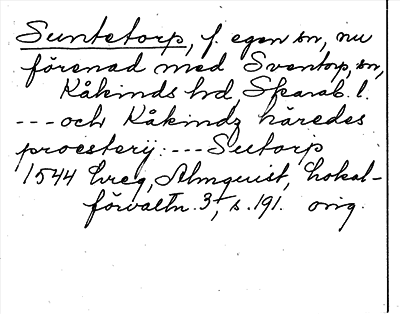 Suntetorp, f. egen sn, nu
förenad med Sventorp, sn,
Kåkinds hd, Skarab. l.
--- och Kåkindz häredes
proesterij: --- Sutorp
1544 breg, Almquist, Lokal-
förvaltn. 3, s. 191. orig.